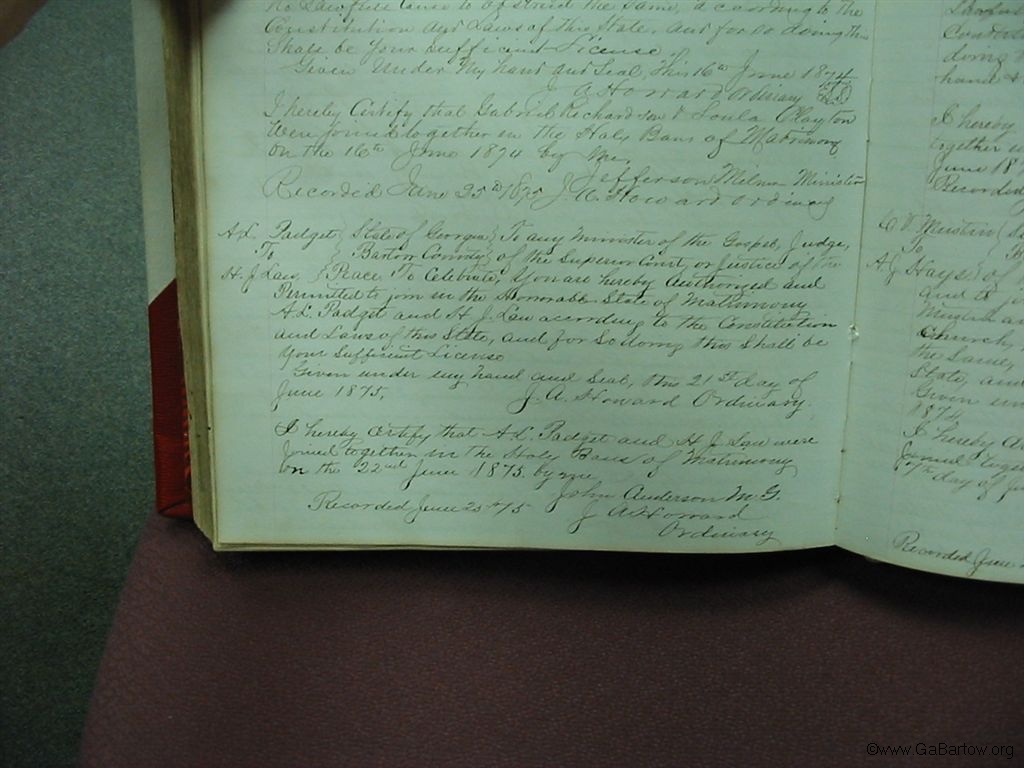 no Lawful cause to obstruct the same, according to the
Constitution and Laws of this State. and for so doing this
Shall be Your Sufficient License.
Given Under My hand and Seal, This 16th June 1874
J. A. Howard Ordinary
I hereby Certify that Gabriel Richardson & Loula Clayton
Were joined together in the Holy Bans of Matrimony
On the 16th June 1874 by me.
Jefferson Milner Minister
Recorded June 25th 1875 J. A. Howard ordinary
A.L. Padget } State of Georgia } To any Minister of the Gospel, Judge,
To } Bartow County } of the Superior Court, or Justice of the
H. J. Law } Peace To Celebrate, You are hereby Authorized and
Permitted to join in the Honorable State of Matrimony
A.L. Padget and H. J. Law according to the Constitution
and Laws of this State, and for So doing this Shall be
Your Sufficient License
Given under my hand and Seal, this 21st day of
June 1875. J. A. Howard Ordinary.
I hereby certify that A.L. Padget and H. J. Law were
Joined together in the Holy Bans of Matrimony
on the 22nd June 1875. by me
John Anderson M.G.
Recorded June 25 /75 J A Howard
Ordinary
doing
hand &
I hereby
together
June 18
Recorded
To
A. J Hays } of
and to
Church,
the Same,
State, and
Given
1874
I hereby
joined toge
day of Ju
Recorded June
©www.GaBartow.org